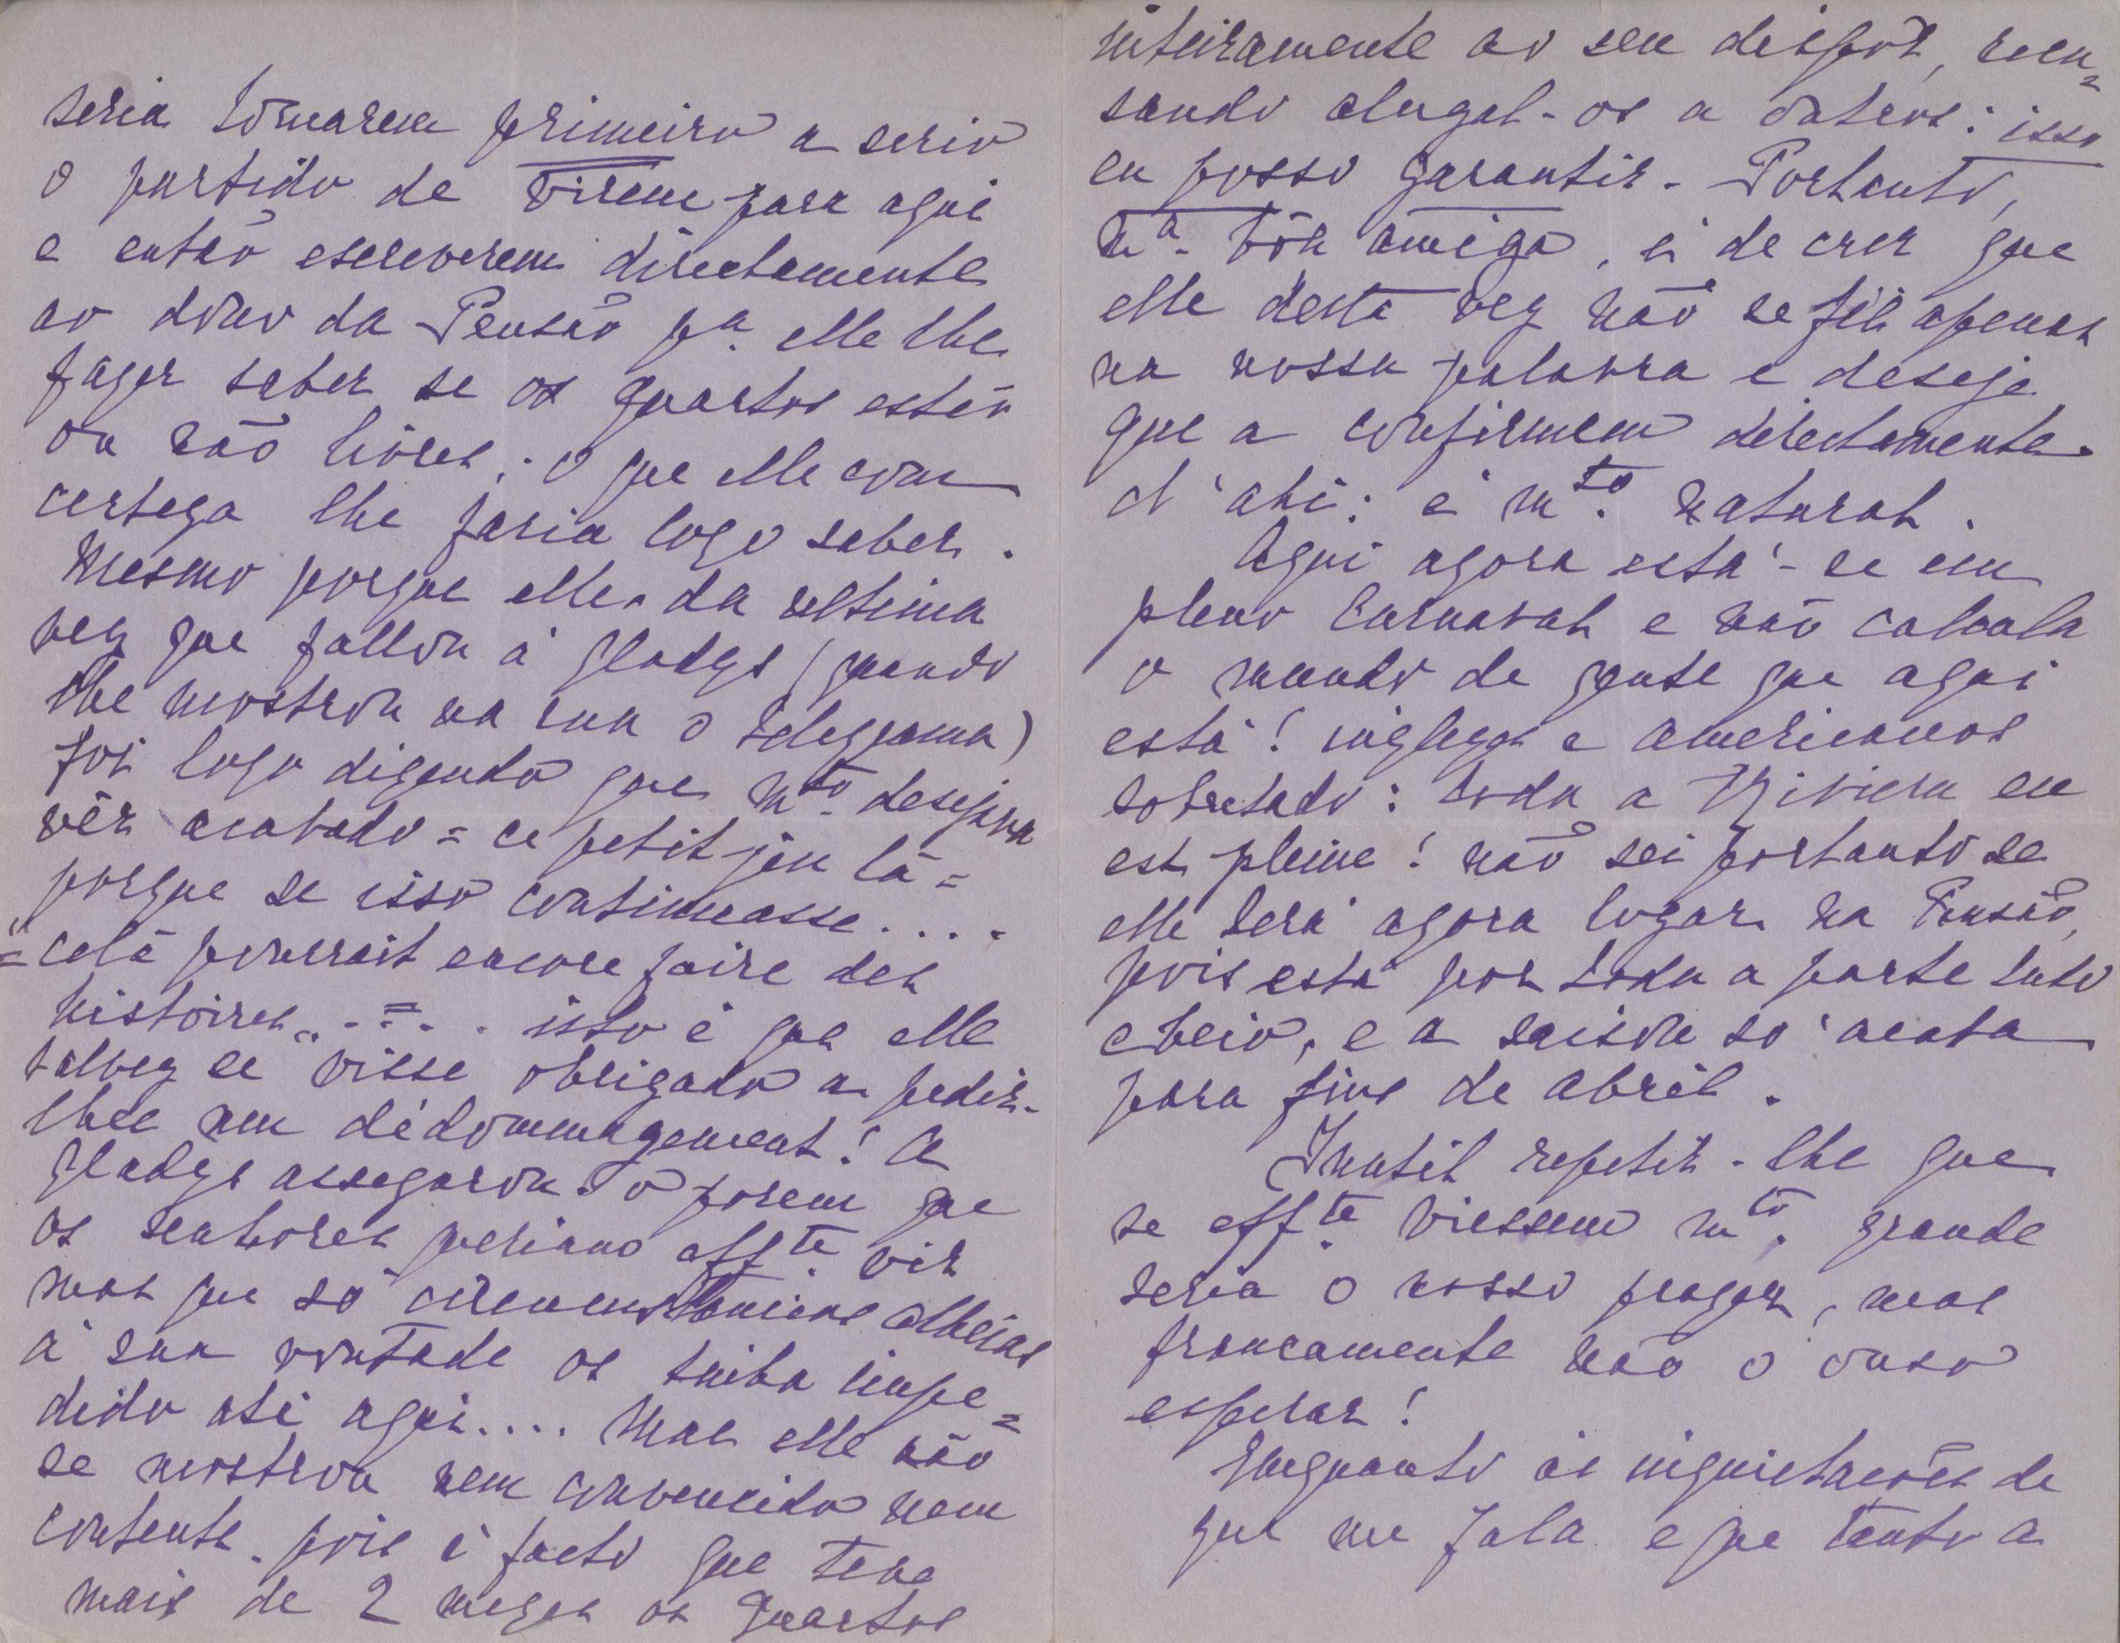 seria tomarem primeiro a serio
o partido de virem para aqui
e então escreverem directamente
ao dono da Pensão pª. elle lhe
fazer saber se os quartos estão
ou não livres; o que elle com
certeza lhe faria logo saber.
Mesmo porque elle da ultima
vez que fallou á Gladys (quando
lhe mostrou na rua o telegrama)
foi logo dizendo que mto. desejava
vêr acabado = ce petit jeu là =
porque se isso continuasse....
= "celà pourrait encore faire des
histoires" ..=.. isto é que elle
talvez se visse obrigado a pedir-
lhes um dédommagement! A
Gladys assegurou-o porem que
os senhores queriam effte. vir
mas que só circumstancias alheias
á sua vontade os tinha impe=
dido até aqui.... Mas elle não
se mostrou nem convencido nem
contente. pois é facto que teve
mais de 2 mezes os quartos
inteiramente ao seu dispôr, recu=
sando alugal-os a outros: isso
eu posso garantir. Portanto,
mª. bôa amiga, é de crer que
elle desta vez não se fie apenas
na nossa palavra e deseje
que a confirmem directamente
d'ahi: é mto. natural.
Aqui agora está-se em
pleno Carnaval e não calcula
o mundo de gente que aqui
está! inglezes e americanos
sobretudo: toda a Riviera en
est pleine! não sei portanto se
elle terá agora logar na Pensão,
pois está por toda a parte tudo
cheio, e a saison só acaba
para fins de abril.
Inutil repetir-lhe que
se effte. viessem mto. grande
seria o nosso prazer, mas
francamente não o ouso
esperar!
Emquanto ás inquietações de
que me fala e que tanto a